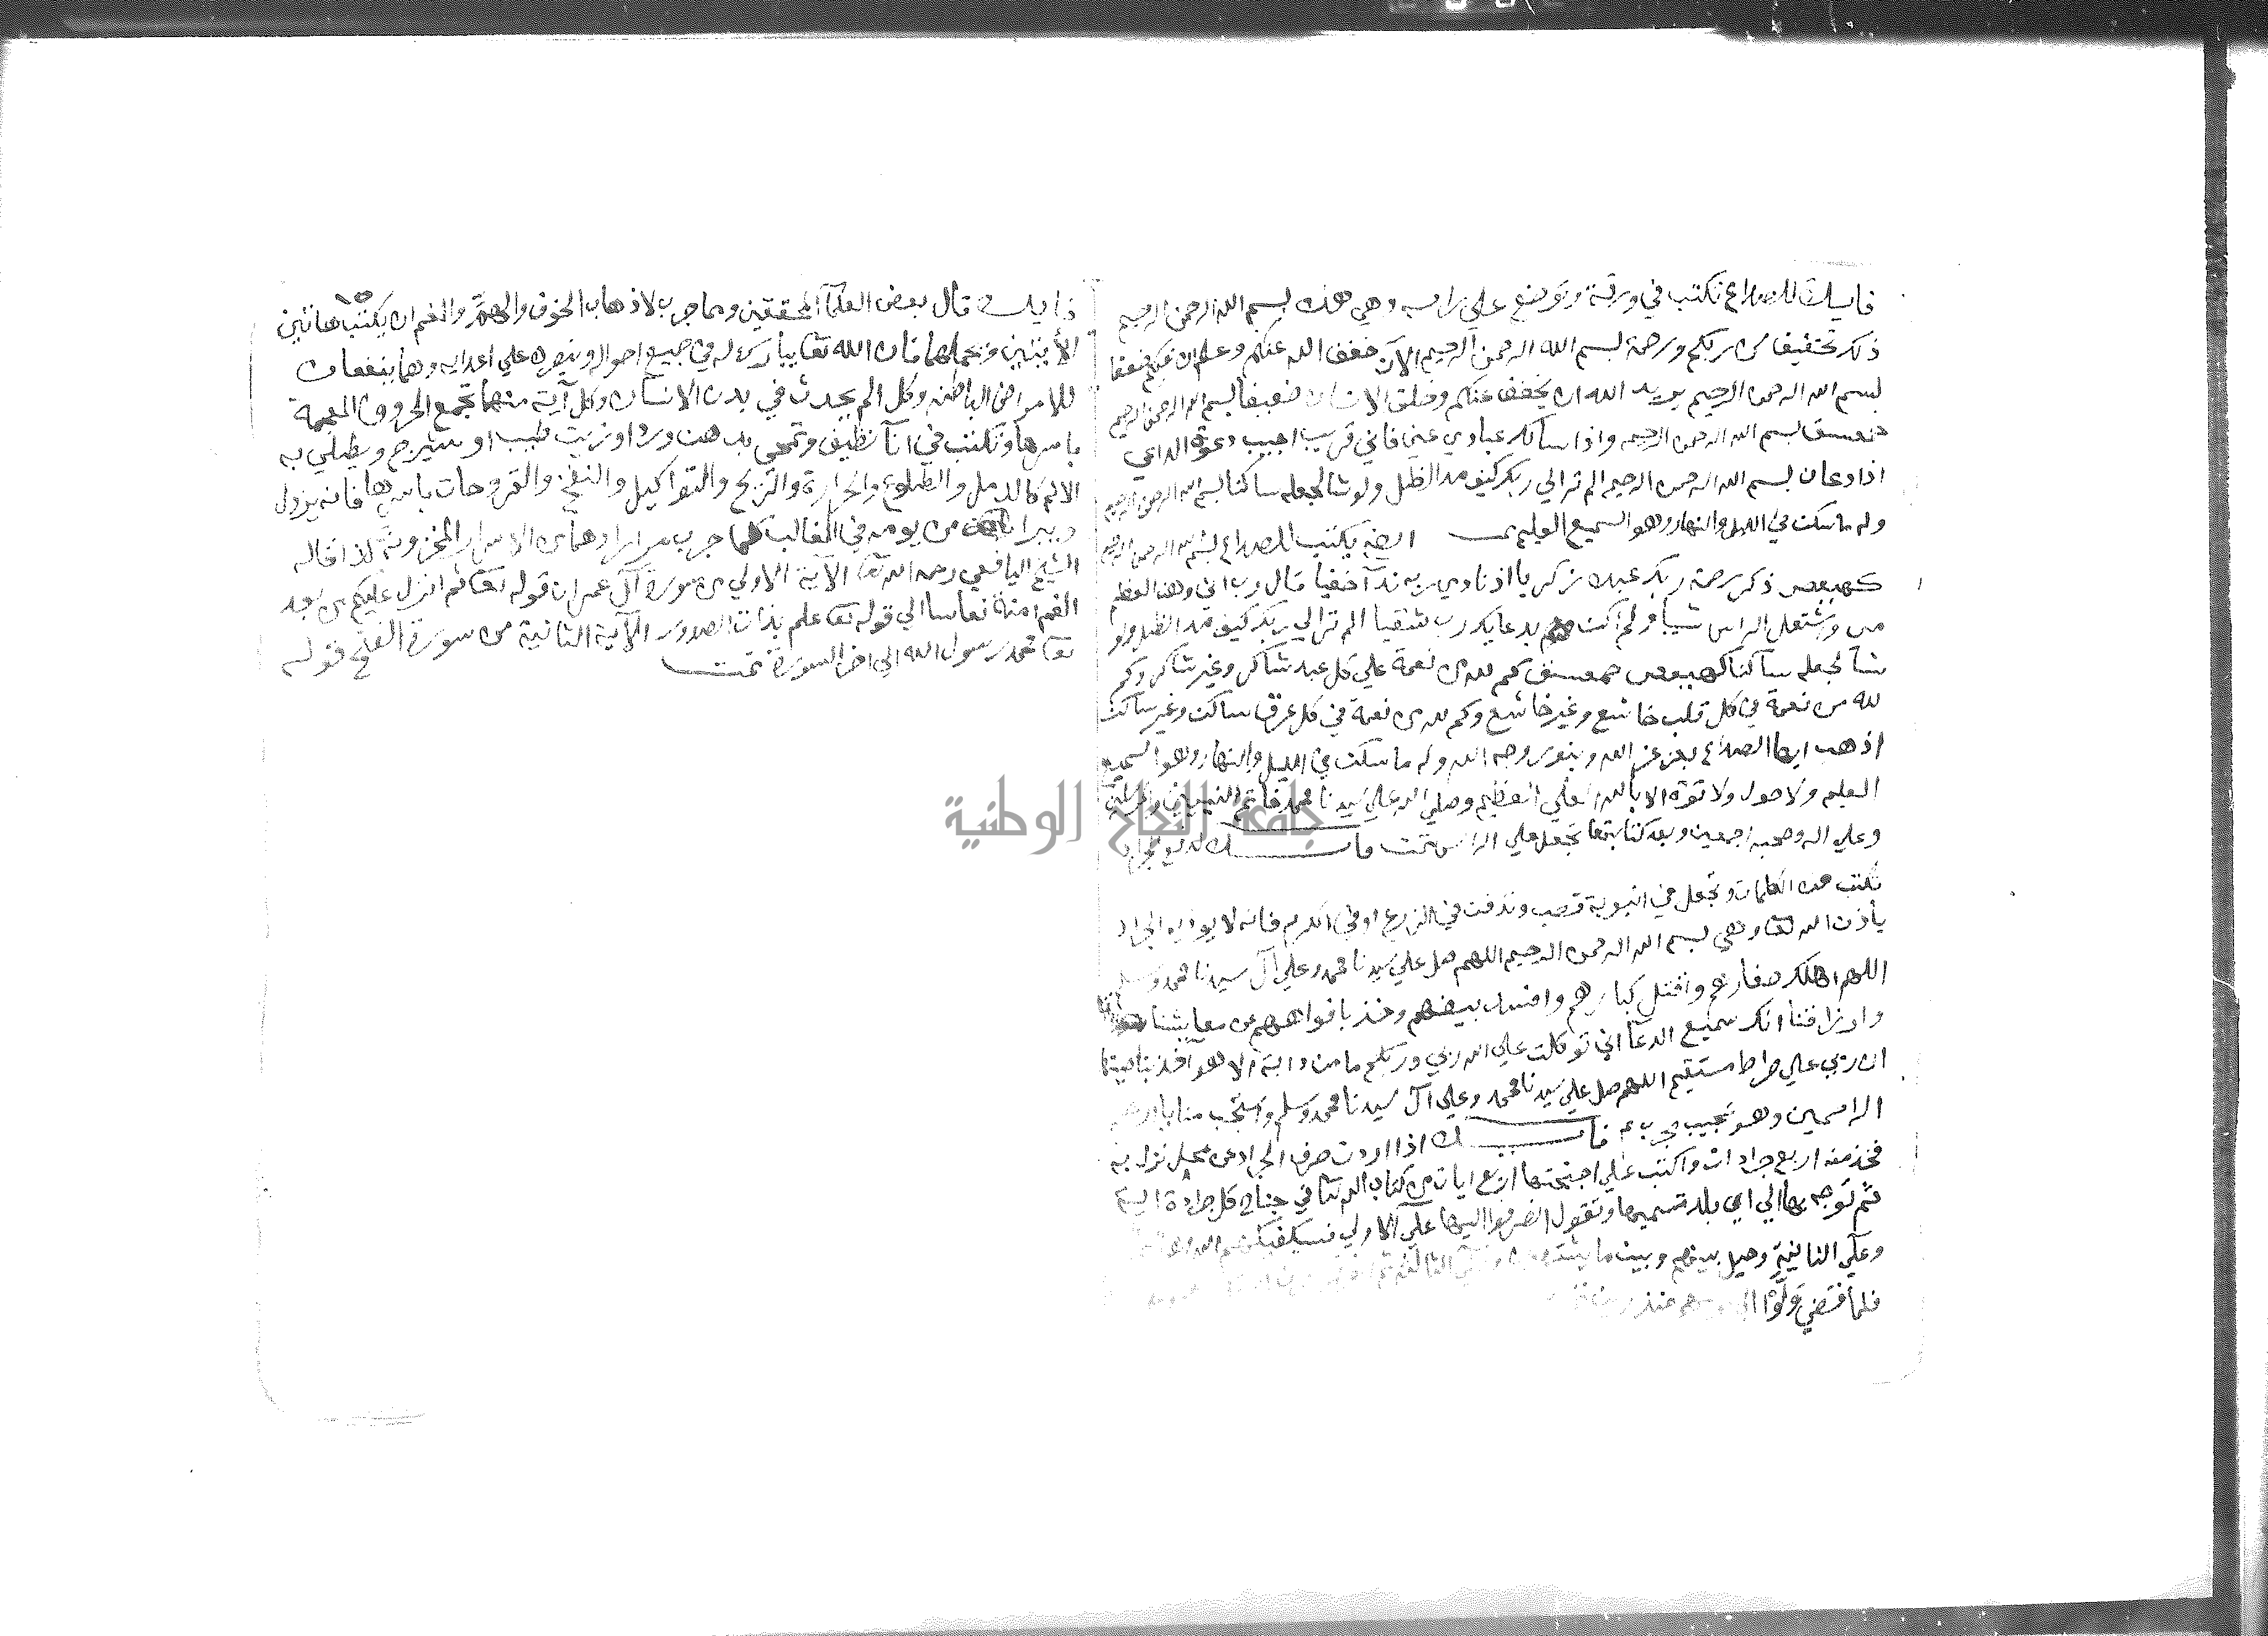 فايدة للصداع تكتب في ورقة وتوضع علي راسه وهي هذه بسم الله الرحمن الرحيم
ذلك تخفيف من ربكم ورحمة بسم الله الرحمن الرحيم الآن خفف الله عنكم وعلم ان فيكم ضعفا
بسم الله الرحمن الرحيم يريد الله ان يخفف عنكم وخلق الانسان ضعيفا بسم الله الرحمن الرحيم
حمعسق بسم الله الرحمن الرحيم واذا سالك عبادي عني فاني قريب اجيب دعوة الداعي
اذا دعان بسم الله الرحمن الرحيم الم تر الي ربك كيف مد الظل ولو شا لجعله ساكنا بسم الله الرحمن الرحيم
وله ما سكن في الليل والنهار وهو السميع العليم يكتب للصداع بسم الله الرحمن الرحيم
كهيعص ذكر رحمة ربك عبده زكريا اذ نادي ربه ندآ خفيا قال رب اني وهن العظم
مني واشتعل الراس شيبا ولم اكن بدعايك رب شقيا الم تر الي ربك كيف مد الظل ولو
شآ لجعله ساكنا كهيعص حمعسق كم لله من نعمة علي كل عبد شاكر وغير شاكر وكم
لله من نعمة في كل قلب خاشع وغير خاشع وكم لله من نعمة في كل عرق ساكن وغير ساكن
اذهب ايها الصداع بعز عز الله وبنور وجه الله وله ما سكن في الليل والنهار وهو السميع
العليم ولا حول ولا قوة الا بالله العلي العظيم وصلي الله علي سيدنا محمد خاتم النبيين والمرسلين
وعلي اله وصحبه اجمعين وبعد كتابتها تجعل علي الراس تمت فايدة لدفع الجراد
تكتب هذه الكلمات وتجعل في انبوبة قصب وتدفن في الزرع او في الكرم فانه لا يوذيه الجراد
بأذن الله تعا وهي بسم الله الرحمن الرحيم اللهم صل علي سيدنا محمد وعلي آل سيدنا محمد وسلم
اللهم اهلك صغارهم واقتل كبارهم وافسد بيضهم وخذ بافواههم عن معايشنا
وارزاقنا انك سميع الدعآ اني توكلت علي الله ربي وربكم ما من دابة الا هو آخذ بناصيتها
ان ربي علي صراط مستقيم اللهم صل علي سيدنا محمد وعلي آل سيدنا محمد وسلم واستجب منا يا ارحم
الراحمين وهو عجيب مجرب فايدة اذا اردت صرف الجراد عن محل نزل به
فخذ منه اربع جرادات واكتب علي اجنحتها اربع ايات من كتاب الله تعا في جناح كل جرادة اية
ثم توجه بها الي اي بلد تسميها وتقول انصرفوا اليها علي الاولي فسيكفيكهم الله وهو
وعلي الثانية وحيل بينهم وبين ما يشتهون وعلي الثالثة
فلما قضي ولوا الي قومهم منذرين
فايدة قال بعض العلمآ المحققين ومما جرب لاذهاب الخوف والهم والغم ان يكتب هاتين
الآيتين ويحملهما فان الله تعا يبارك له في جميع احواله وينصره علي اعدايه وهما ينفعان
للامراض الباطنه وكل الم يحدث في بدن الانسان وكل آية منهما تجمع الحروف المعجمة
باسرها وتكتب في انآ نظيف وتمحي بدهن ورد او زيت طيب او شيرج ويطلي به
الالم كالدمل والطلوع والحرارة والريح والثواكيل والنفخ والقروحات باسرها فانه يزول
ويبرا من يومه في الغالب كما جرب مرارا وهما من الاسرار المخزونة كذا قاله
الشيخ اليافعي رحمه الله تعا الآية الاولي من سورة آل عمران قوله تعا ثم انزل عليكم من بعد
الغم امنة نعاسا الي قوله تعا عليم بذات الصدور الآية الثانية من سورة الفتح قوله
تعا محمد رسول الله الي اخر السورة تمت
جامعة النجاح الوطنية